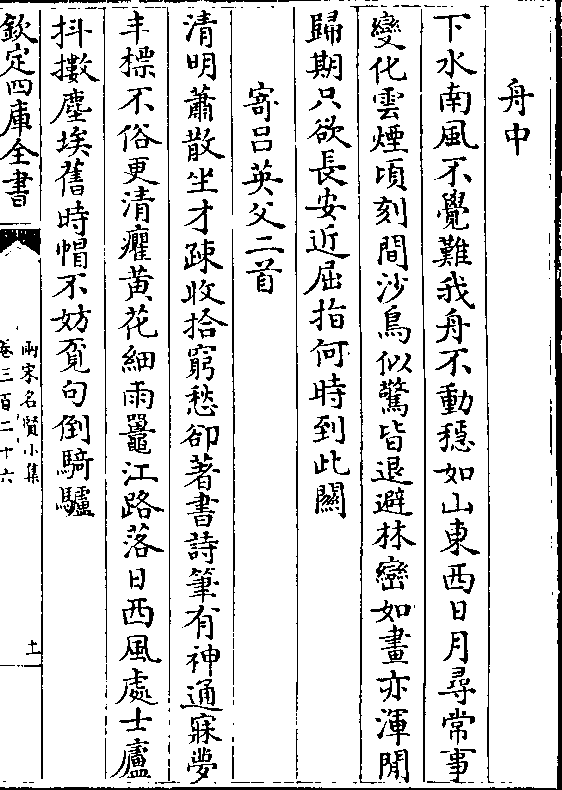 舟中
下水南風不覺難我舟不動穩如山東西日月尋常事
變化雲煙頃刻間沙鳥似驚皆退避林巒如畫亦渾閒
歸期只欲長安近屈指何時到此關
寄呂英父二首
清明蕭散坐才疎收拾窮愁卻著書詩筆有神通寐夢
丰標不俗更清癯黃花細雨鼉江路落日西風處士廬
抖擻塵埃舊時帽不妨覓句倒騎驢
欽定四庫全書
兩宋名賢小集
卷三百二十六
十一